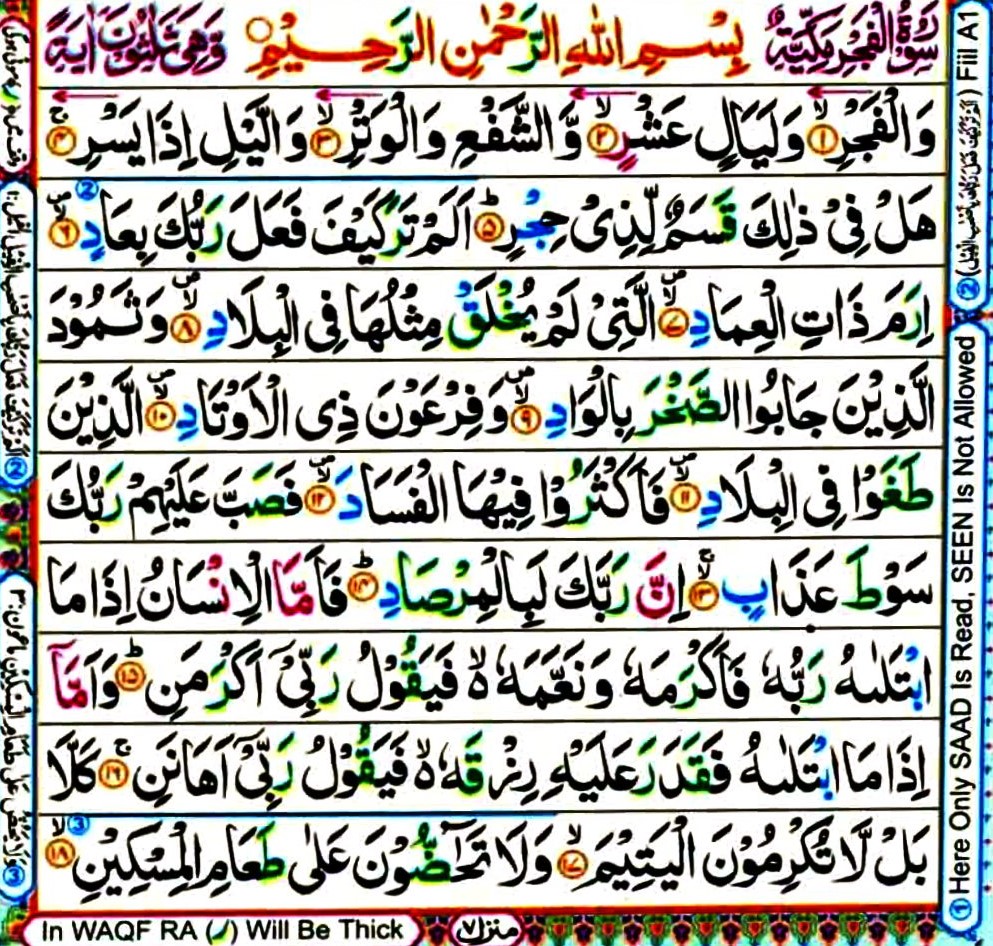 سُوْرَةُ الْفَجْرِ مَكِّيَّةٌ بِسْمِ اللّٰهِ الرَّحْمٰنِ الرَّحِيْمِ ○ وَّهِيَ ثَلٰثُوْنَ اٰيَةً
وَالْفَجْرِ ۙ﴿۱﴾ وَلَيَالٍ عَشْرٍ ۙ﴿۲﴾ وَّالشَّفْعِ وَالْوَتْرِ ۙ﴿۳﴾ وَالَّيْلِ اِذَا يَسْرِ ۚ﴿۴﴾
هَلْ فِيْ ذٰلِكَ قَسَمٌ لِّذِيْ حِجْرٍ ؕ﴿۵﴾ اَلَمْ تَرَ كَيْفَ فَعَلَ رَبُّكَ بِعَادٍ ۙ﴿۶﴾ ②
اِرَمَ ذَاتِ الْعِمَادِ ۙ﴿۷﴾ الَّتِيْ لَمْ يُخْلَقْ مِثْلُهَا فِي الْبِلَادِ ۙ﴿۸﴾ وَثَمُوْدَ
الَّذِيْنَ جَابُوا الصَّخْرَ بِالْوَادِ ۙ﴿۹﴾ وَفِرْعَوْنَ ذِي الْاَوْتَادِ ۙ﴿۱۰﴾ الَّذِيْنَ
طَغَوْا فِي الْبِلَادِ ۙ﴿۱۱﴾ فَاَكْثَرُوْا فِيْهَا الْفَسَادَ ۙ﴿۱۲﴾ فَصَبَّ عَلَيْهِمْ رَبُّكَ
سَوْطَ عَذَابٍ ۚ﴿۱۳﴾ اِنَّ رَبَّكَ لَبِالْمِرْصَادِ ؕ﴿۱۴﴾ فَاَمَّا الْاِنْسَانُ اِذَا مَا
ابْتَلٰىهُ رَبُّهٗ فَاَكْرَمَهٗ وَنَعَّمَهٗ ۙ۬ فَيَقُوْلُ رَبِّيْ اَكْرَمَنِ ؕ﴿۱۵﴾ وَاَمَّاۤ
اِذَا مَا ابْتَلٰىهُ فَقَدَرَ عَلَيْهِ رِزْقَهٗ ۙ۬ فَيَقُوْلُ رَبِّيْۤ اَهَانَنِ ۚ﴿۱۶﴾ كَلَّا
بَلْ لَّا تُكْرِمُوْنَ الْيَتِيْمَ ۙ﴿۱۷﴾ وَلَا تَحٰٓضُّوْنَ عَلٰى طَعَامِ الْمِسْكِيْنِ ۙ﴿۱۸﴾ ③
In WAQF RA (ر) Will Be Thick
منزل ۷
① Here Only SAAD Is Read, SEEN Is Not Allowed
② Fill A1